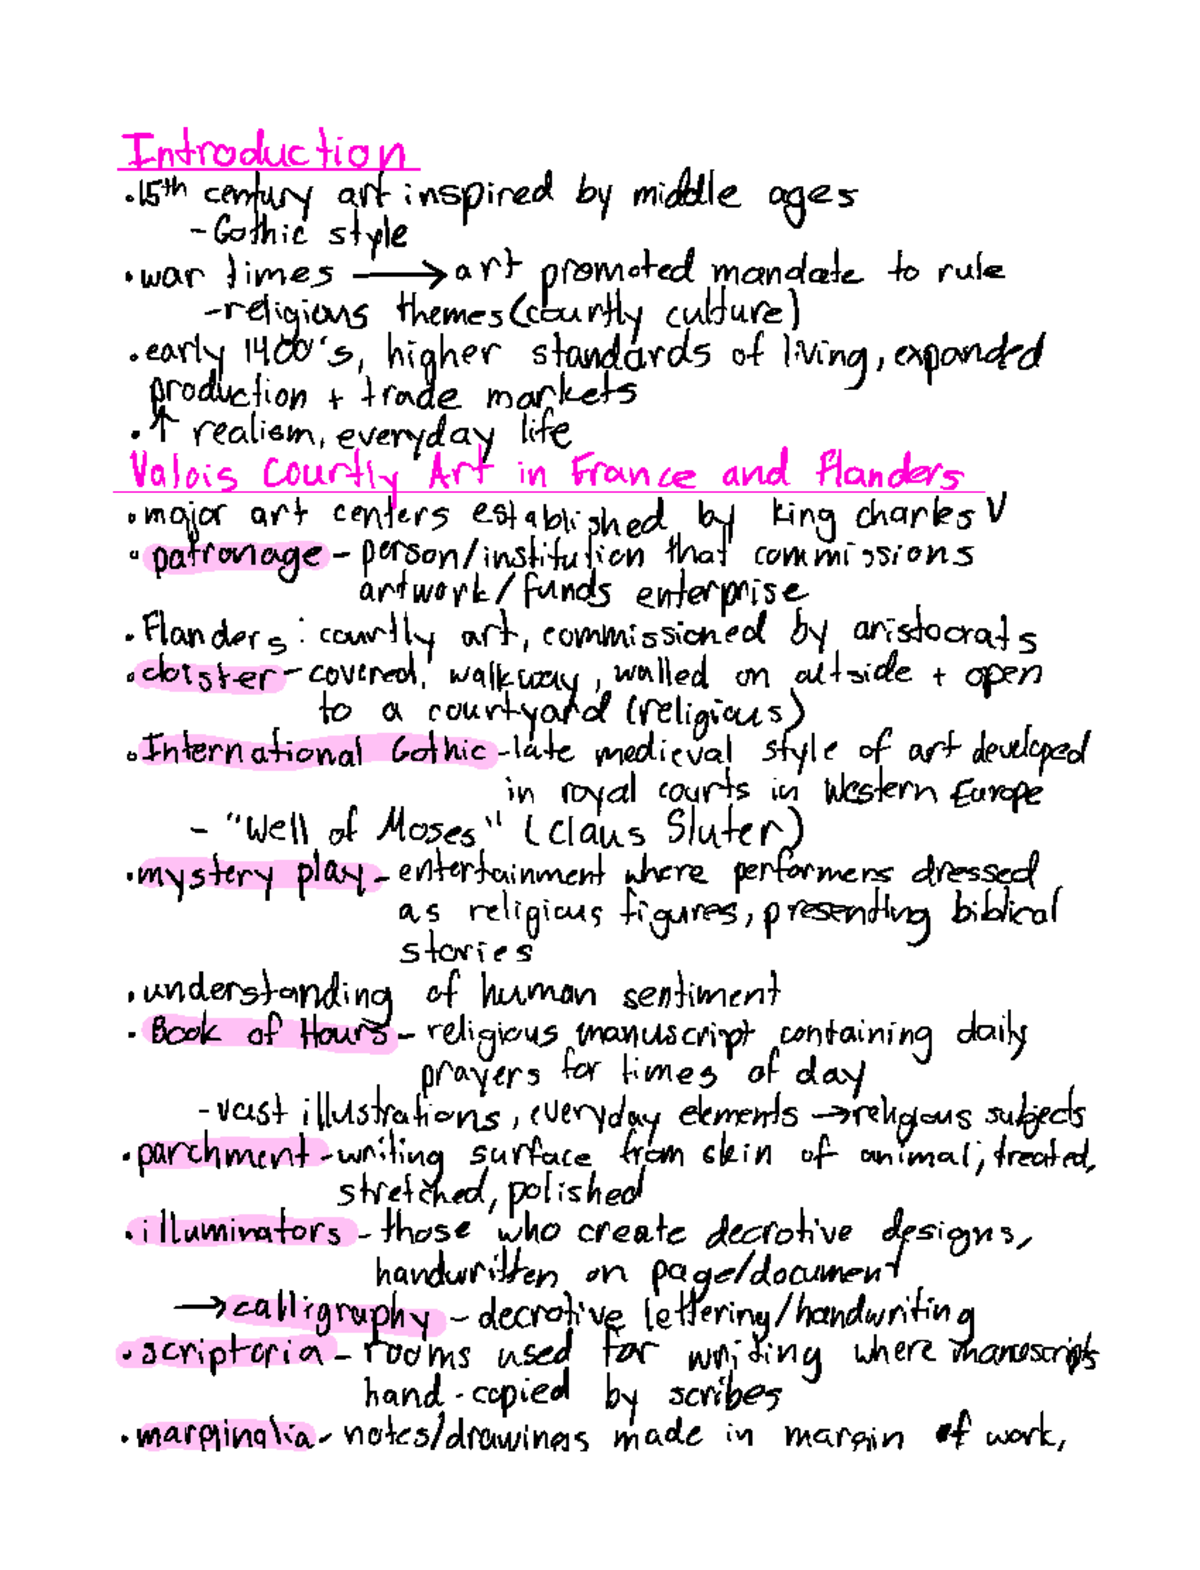 Introduction
•15th century art inspired by middle ages
-Gothic style
•war times → art promoted mandate to rule
-religious themes (courtly culture)
•early 1400's, higher standards of living, expanded
production + trade markets
•↑ realism, everyday life
Valois Courtly Art in France and Flanders
•major art centers established by king charles V
•patronage - person/institution that commissions
artwork/funds enterprise
•Flanders: courtly art, commissioned by aristocrats
•cloister - covered walkway, walled on outside + open
to a courtyard (religious)
•International Gothic - late medieval style of art developed
in royal courts in Western Europe
- "Well of Moses" (Claus Sluter)
•mystery play - entertainment where performers dressed
as religious figures, presenting biblical
stories
•understanding of human sentiment
•Book of Hours - religious manuscript containing daily
prayers for times of day
-vast illustrations, everyday elements → religious subjects
•parchment - writing surface from skin of animal, treated,
stretched, polished
•illuminators - those who create decrotive designs,
handwritten on page/document
→ calligraphy - decrotive lettering/handwriting
•scriptoria - rooms used for writing where manuscripts
hand-copied by scribes
•marginalia - notes/drawings made in margin of work,